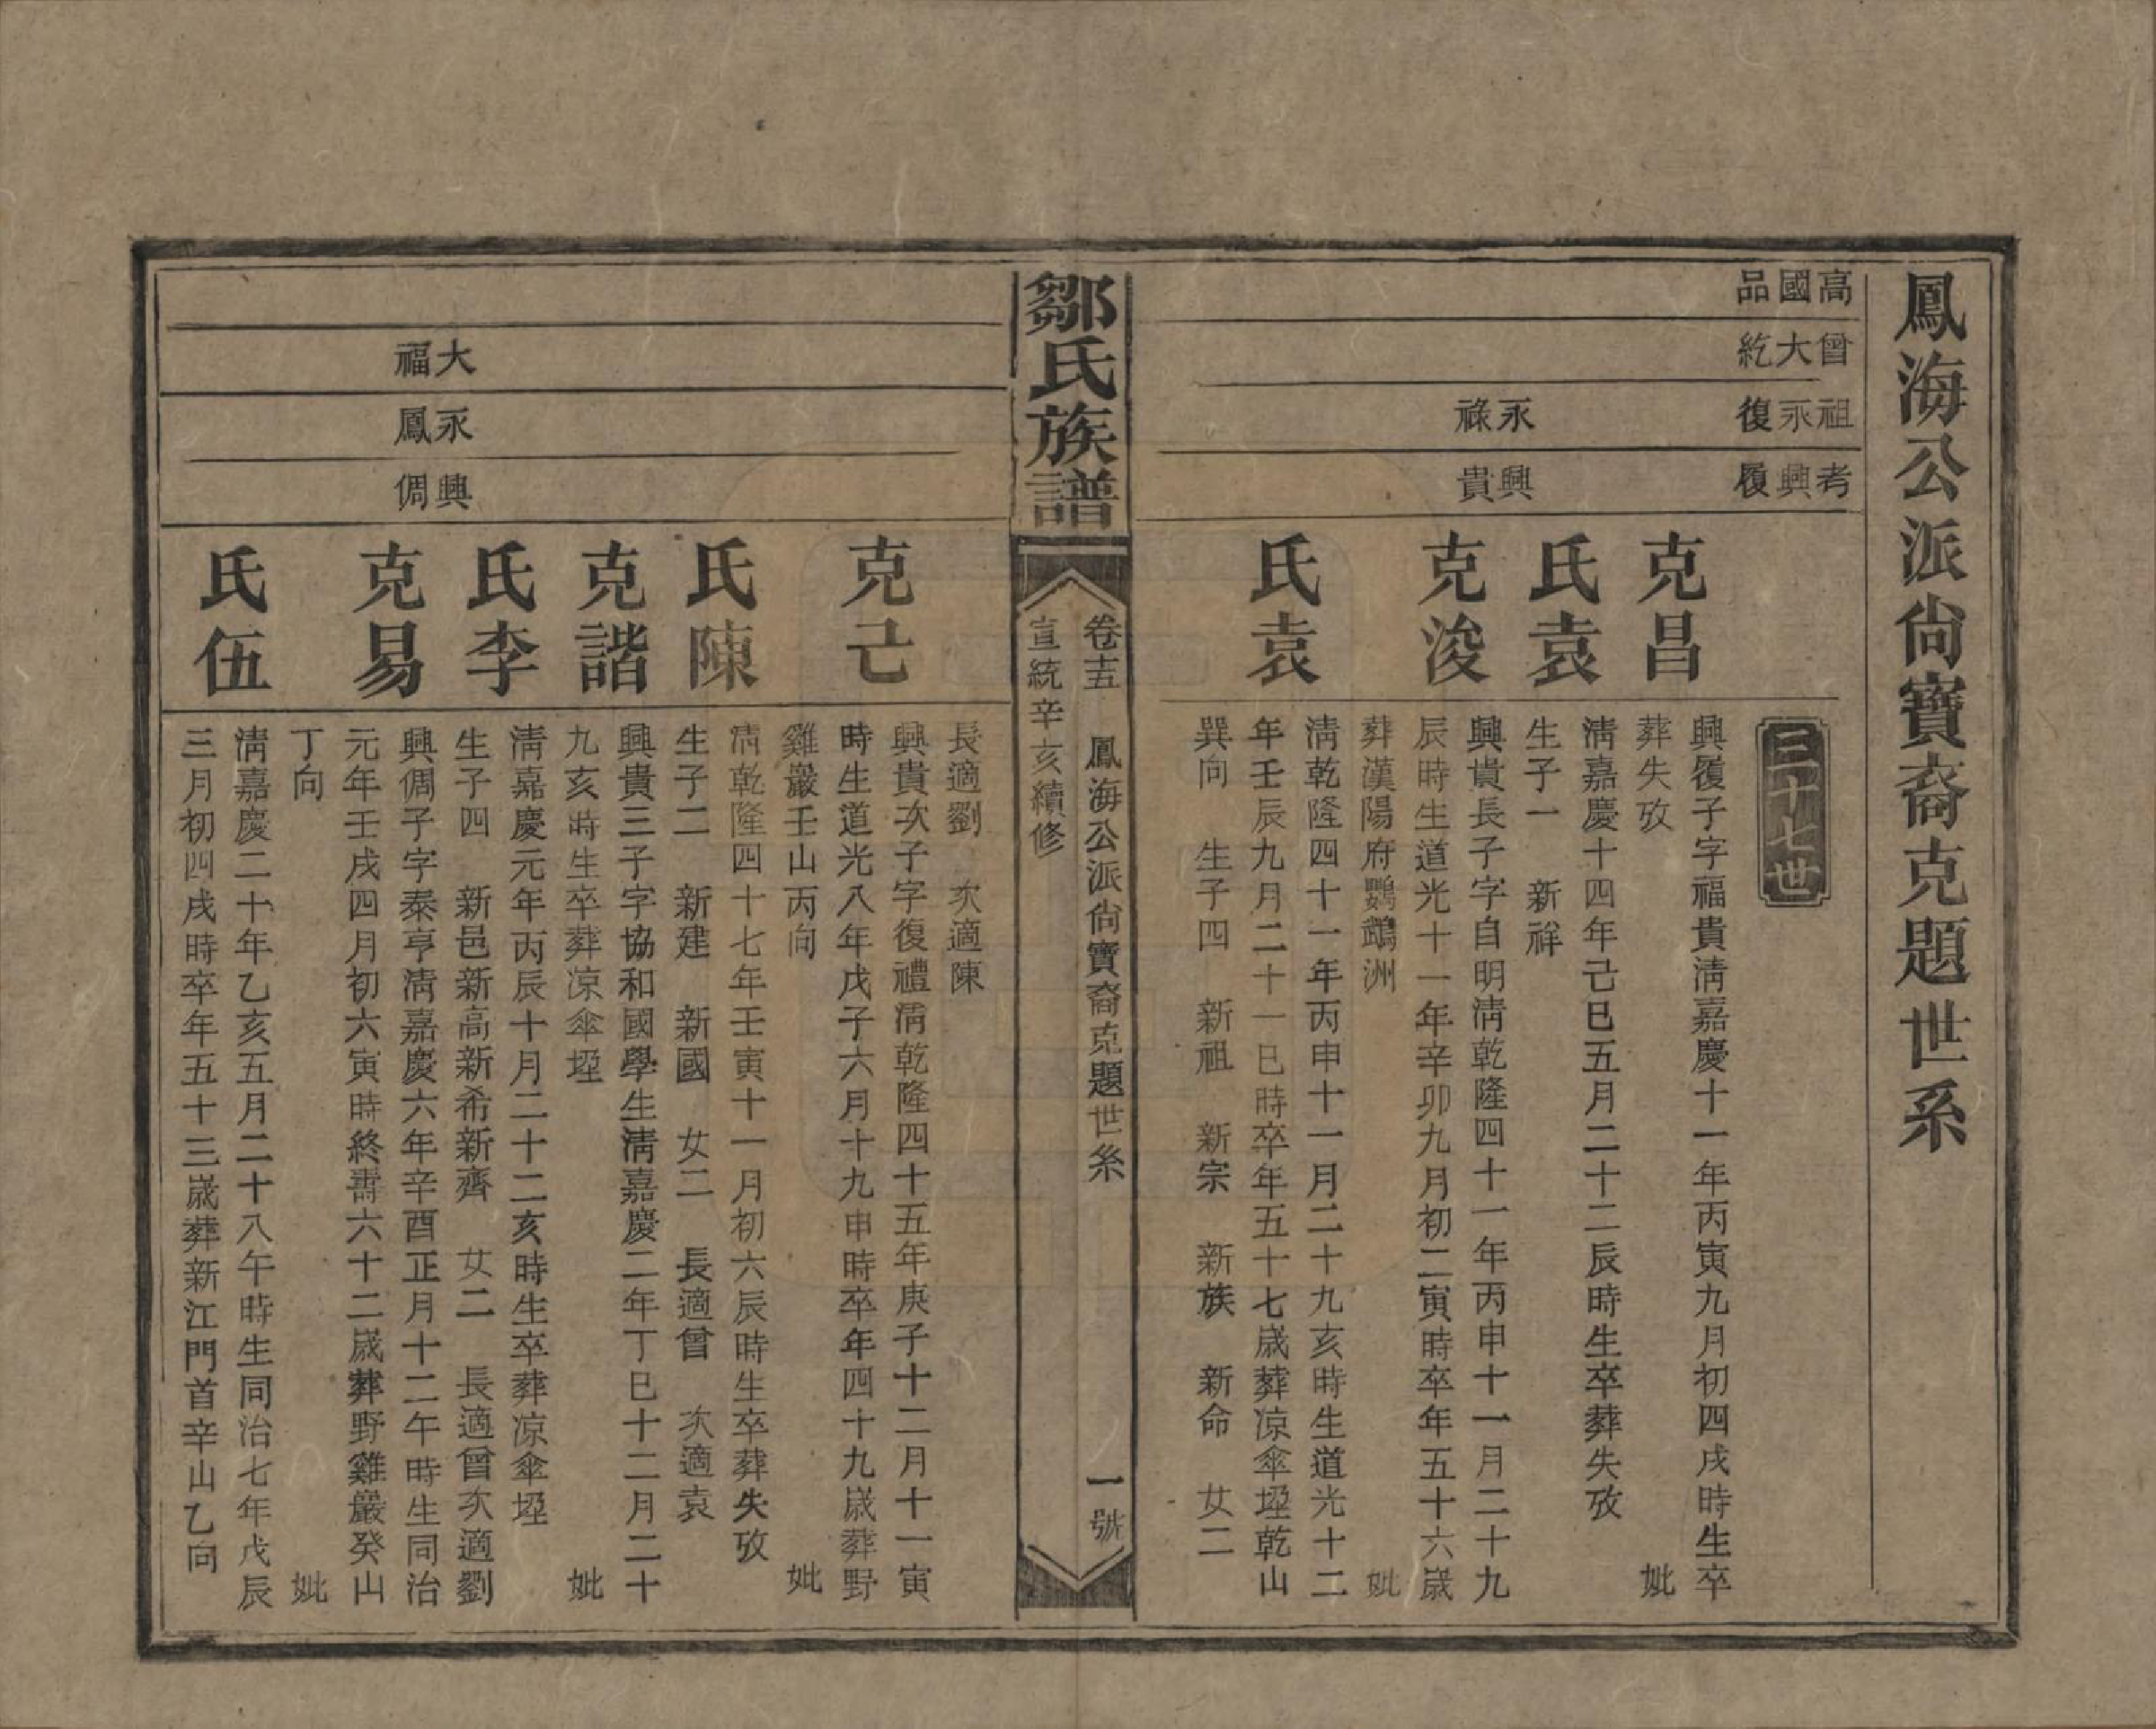 鳳海公派尙寶裔克題世系
高 國品
曾 大紇
祖 永復
考 興履
三十七世
克昌
興履子字福貴淸嘉慶十一年丙寅九月初四戌時生卒
葬失攷 妣
氏袁
淸嘉慶十四年己巳五月二十二辰時生卒葬失攷
生子一 新祥
永祿
興貴
克浚
興貴長子字自明淸乾隆四十一年丙申十一月二十九
辰時生道光十一年辛卯九月初二寅時卒年五十六歲
葬漢陽府鸚鵡洲 妣
氏袁
淸乾隆四十一年丙申十一月二十九亥時生道光十二
年壬辰九月二十一巳時卒年五十七歲葬凉傘堙乾山
巽向 生子四 新祖 新宗 新族 新命 女二
鄒氏族譜
卷十五 鳳海公派尙寶裔克題世系 一號
宣統辛亥續修
長適劉 次適陳
克己
興貴次子字復禮淸乾隆四十五年庚子十二月十一寅
時生道光八年戊子六月十九申時卒年四十九歲葬野
雞巖壬山丙向 妣
氏陳
淸乾隆四十七年壬寅十一月初六辰時生卒葬失攷
生子二 新建 新國 女二 長適曾 次適袁
克諧
興貴三子字協和國學生淸嘉慶二年丁巳十二月二十
九亥時生卒葬凉傘堙 妣
氏李
淸嘉慶元年丙辰十月二十二亥時生卒葬凉傘堙
生子四 新邑新高新希新齊 女二 長適曾次適劉
大福
永鳳
興倜
克易
興倜子字泰亨淸嘉慶六年辛酉正月十二午時生同治
元年壬戌四月初六寅時終壽六十二歲葬野雞巖癸山
丁向 妣
氏伍
淸嘉慶二十年乙亥五月二十八午時生同治七年戊辰
三月初四戌時卒年五十三歲葬新江門首辛山乙向